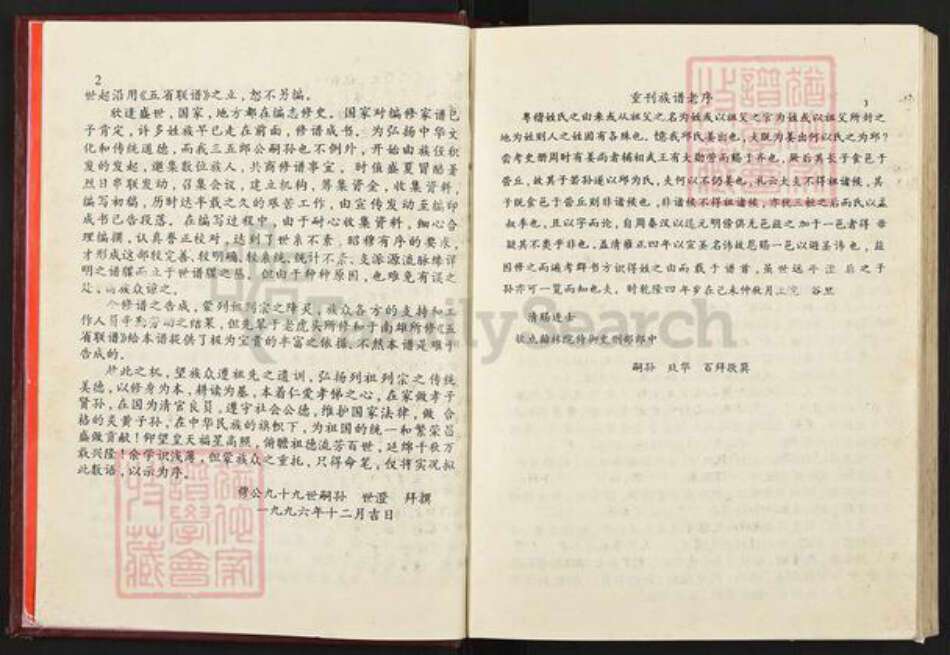 2
世起沿用《五省联谱》之立，恕不另编。
欣逢盛世，国家，地方都在编志修史。国家对编修家谱已
予肯定，许多姓族早已走在前面，修谱成书。为弘扬中华文
化和传统道德，而我三五郎公嗣孙也不例外，开始由族侄积
发的发起，邀集数位族人，共商修谱事宜。时值盛夏冒酷暑
烈日串联发动，召集会议，建立机构，筹集资金，收集资料，
编写初稿，历时达半载之久的艰苦工作，由宣传发动至编印
成书已告段落。在编写过程中，由于耐心收集资料，细心合
理编撰，认真誊正校对，达到了世系不紊，昭穆有序的要求，
才形成这部较完善，较明确，较系统，统计不紊，支派源流脉络详
明之谱牒而立于世谱牒之林。但由于种种原因，也难免有误之
处，请族众谅之。
今修谱之告成，蒙列祖列宗之降灵，族众各方的支持和工
作人员辛勤劳动之结果，但先辈于老虎头所修和于南雄所修《五
省联谱》给本谱提供了极为宝贵的丰富之依据，不然本谱是难于
告成的。
趁此之机，望族众遵祖先之遗训，弘扬列祖列宗之传统
美德，以修身为本，耕读为基，本着仁爱孝悌之心，在家做孝子
贤孙，在国为清官良员，遵守社会公德，维护国家法律，做 合
格的炎黄子孙，在中华民族的旗帜下，为祖国的统一和繁荣昌
盛做贡献！仰望皇天福星高照，俯瞻祖德流芳百世，延绵千秋万
载兴隆！余学识浅薄，但蒙族众之重托，只得命笔，仅将实况拟
此数语，以示为序。
傍公九十九世嗣孙 世澄 拜撰
一九九六年十二月吉日
重刊族谱老序
3
粤稽姓氏之由来或从祖父之名为姓或以祖父之官为姓或以祖父所封之
地为姓别人之姓固有各殊也，憶我邱氏姜出也，夫既为姜出何以氏之为邱？
尝考史册周时有姜尚者辅相武王有大勋劳而赐于齐也，厥后其长子食邑于
营丘，故其子若孙遂以邱为氏，夫何以不仍姜也，礼云大夫不得祖诸候，其
子既食邑于营丘则非诸候也，非诸候不得祖诸候，亦犹三桓之后而氏以孟
叔季也，且以字而论，自周秦汉以迄元明傍俱无邑兹之加于一邑者得 毋
疑其不类乎非也，盖清雍正四年以宣圣名讳故恩赐一邑以避圣讳也，兹
因修之而遍考群书方识得姓之由而 载于谱首，虽世远年湮 后之子
孙亦可一览而知也夫。时乾隆四年岁在己未仲秋月上浣 谷旦
清赐进士
钦点翰林院待御史刑部郎中
嗣孙 玖华 百拜敬巽
收譜猶
藏學他
會家
FamilySearch